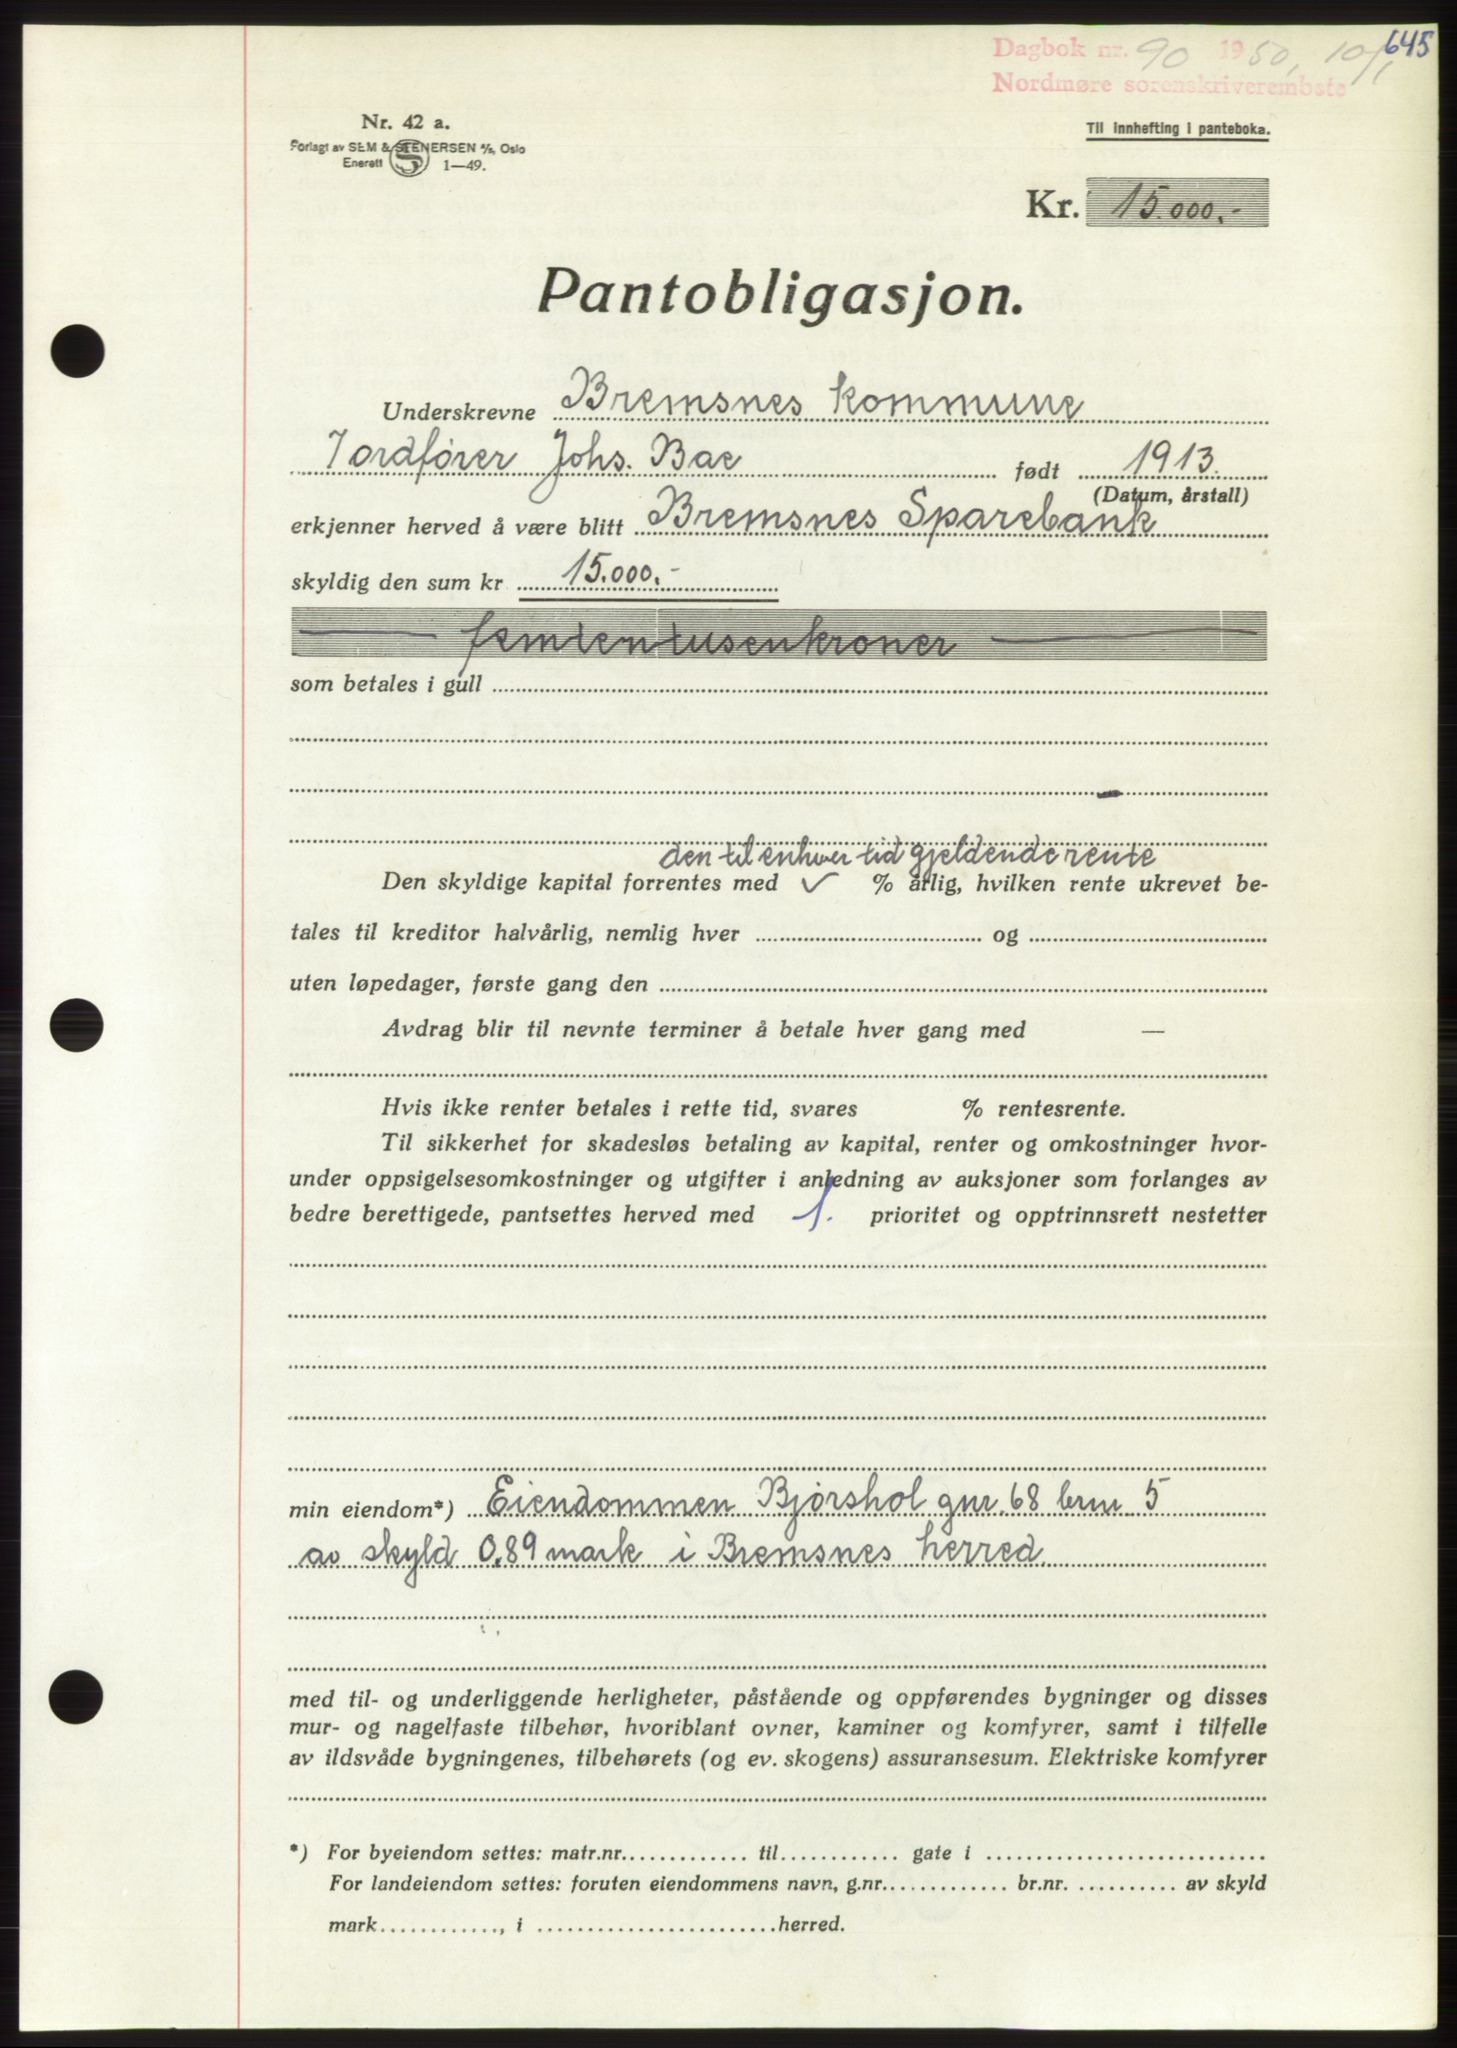 645
Dagbok nr. 90 1950, 10/1
Nordmøre sorenskriverembete
Nr. 42 a.
Forlagt av SEM & STENERSEN A/S, Oslo
Enerett S 1—49.
Til innhefting i panteboka.
Kr. 15.000.-
Pantobligasjon.
Underskrevne Bremsnes kommune
v/ordfører Johs. Bae født 1913.
(Datum, årstall)
erkjenner herved å være blitt Bremsnes Sparebank
skyldig den sum kr 15.000.-
femtentusenkroner
som betales i gull
den til enhver tid gjeldende rente
Den skyldige kapital forrentes med % årlig, hvilken rente ukrevet be-
tales til kreditor halvårlig, nemlig hver og
uten løpedager, første gang den
Avdrag blir til nevnte terminer å betale hver gang med —
Hvis ikke renter betales i rette tid, svares % rentesrente.
Til sikkerhet for skadesløs betaling av kapital, renter og omkostninger hvor-
under oppsigelsesomkostninger og utgifter i anledning av auksjoner som forlanges av
bedre berettigede, pantsettes herved med 1. prioritet og opptrinnsrett nestetter
min eiendom*) Eiendommen Bjørshol gnr. 68 brnr 5
av skyld 0.89 mark i Bremsnes herred
med til- og underliggende herligheter, påstående og oppførendes bygninger og disses
mur- og nagelfaste tilbehør, hvoriblant ovner, kaminer og komfyrer, samt i tilfelle
av ildsvåde bygningenes, tilbehørets (og ev. skogens) assuransesum. Elektriske komfyrer
*) For byeiendom settes: matr.nr. til gate i
For landeiendom settes: foruten eiendommens navn, g.nr. br.nr. av skyld
mark , i herred.